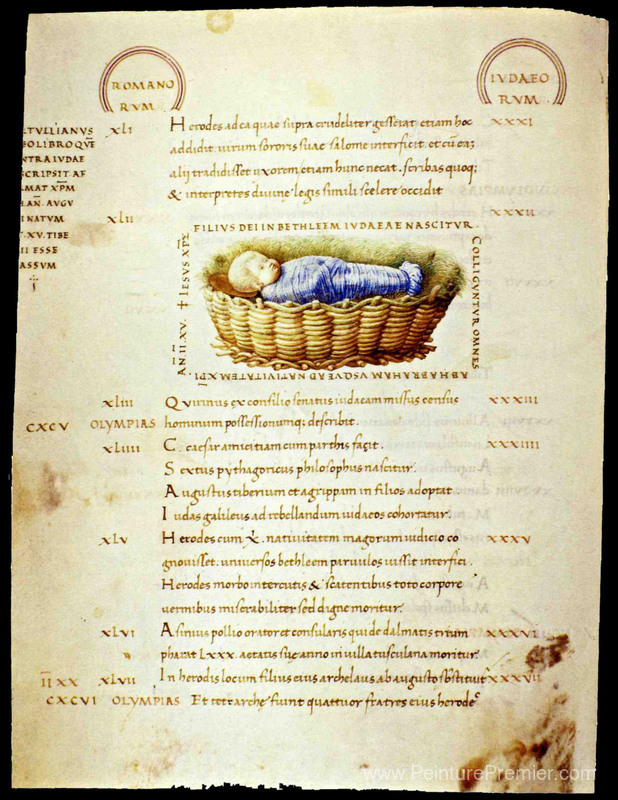 ROMANO
RVM
IVDAEO
RVM
TVLLIANVS
BOLIBRO QVE
NTRA IVDAE
SCRIPSIT AF
MAT XPM
AN AVGV
I NATVM
XV TIBE
II ESSE
ASSVM
XLI Herodes ad ea quae supra crudeliter gesserat etiam hoc XXXI
addidit. uirum sororis suae salome interficit. et cu ea
alii tradidisset uxorem etiam hunc necat. scribas quoq;
& interpretes diuine legis simili scelere occidit
XLII XXXII
FILIVS DEI IN BETHLEEM IVDAEAE NASCITVR.
COLLIGVNTVR OMNES
AB HABRAHAM VSQVE AD NATIVITATEM XPI
AN II XV † IESVS XPS
XLIII Quirinus ex consilio senatus iudaeam missus census XXXIII
CXCV OLYMPIAS hominum possessionumq; describit.
XLIIII C. caesar amicitiam cum parthis facit. XXXIIII
Sextus pythagoricus philosophus nascitur.
Augustus tiberium et agrippam in filios adoptat
Iudas galileus ad rebellandum iudaeos cohortatur.
XLV Herodes cum nativitatem magorum iudicio co XXXV
gnouisset. uniuersos bethleem paruulos iussit interfici.
Herodes morbo intercutis & scatentibus toto corpore
uermibus miserabiliter sed digne moritur.
XLVI Asinius pollio orator et consularis qui de dalmatis trium XXXVI
pharat LXXX. aetatis suę anno in uilla tusculana moritur.
II XX XLVII In herodis locum filius eius archelaus ab augusto XXXVII
CXCVI OLYMPIAS Et tetrarchę fiunt quattuor fratres eius herode
www.PeinturePremier.com